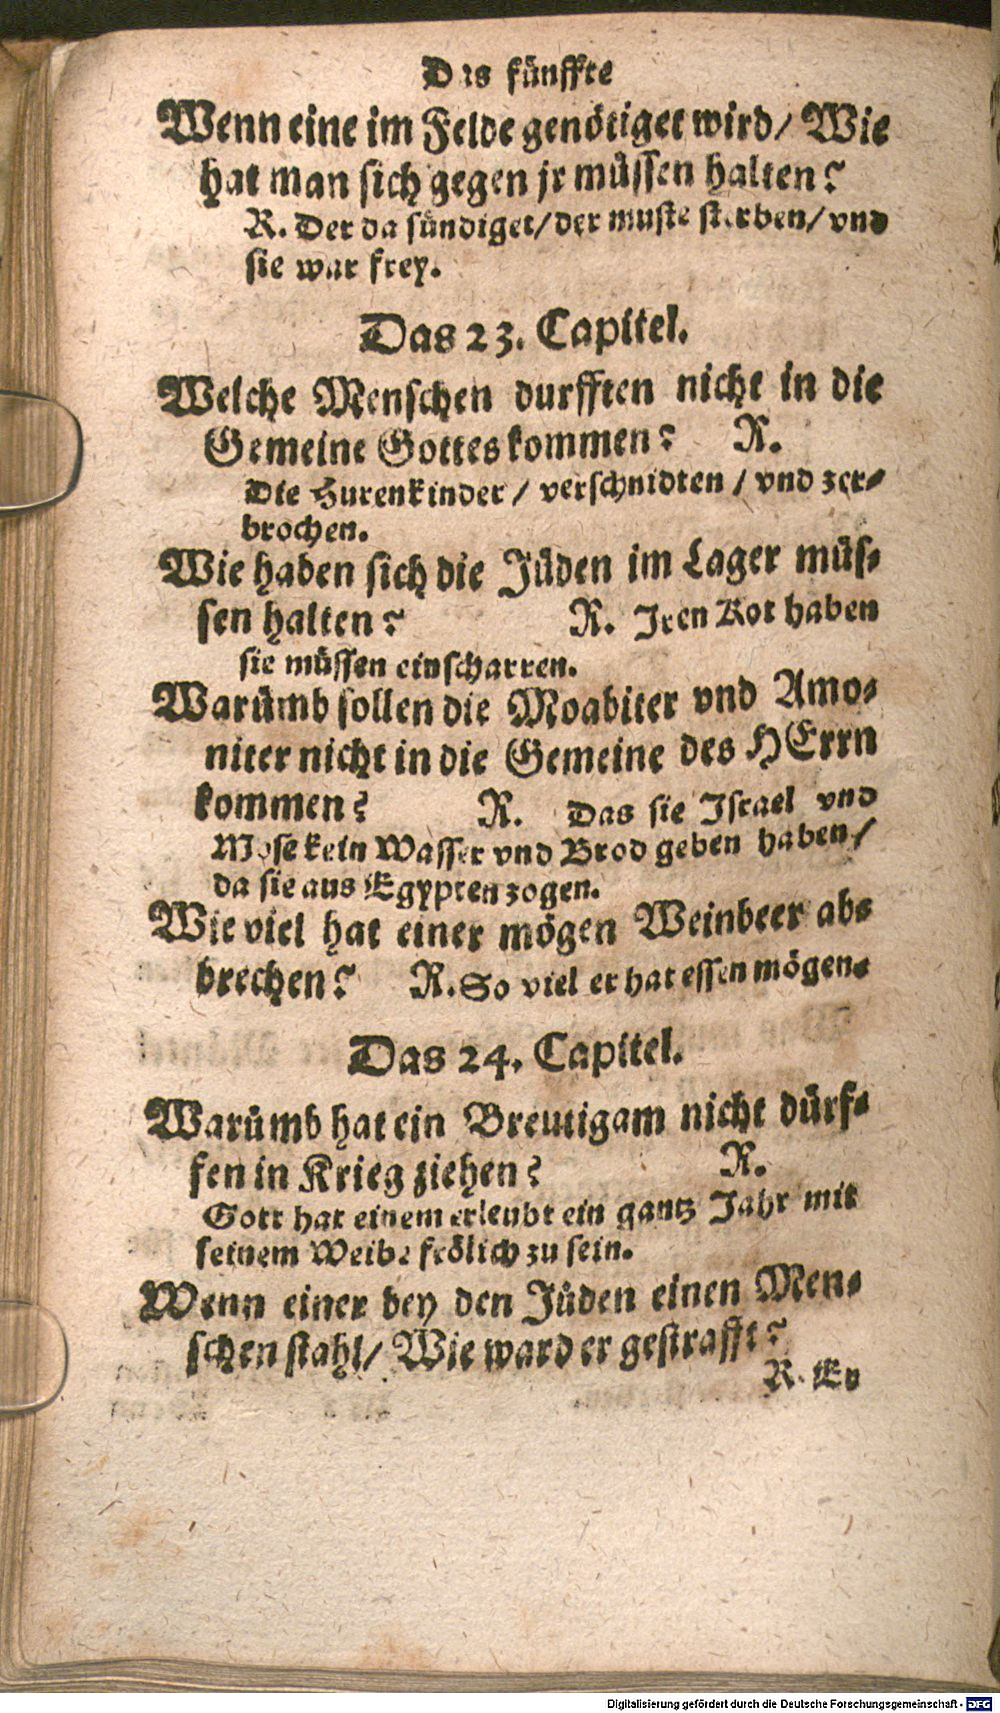 Das fünffte
Wenn eine im Felde genötiget wird/ Wie
hat man sich gegen jr müssen halten?
R. Der da sündiget/ der muste sterben/ vnd
sie war frey.
Das 23. Capitel.
Welche Menschen durfften nicht in die
Gemeine Gottes kommen? R.
Die Hurenkinder/ verschnidten/ vnd zer-
brochen.
Wie haben sich die Jüden im Lager müs-
sen halten? R. Iren Kot haben
sie müssen einscharren.
Warümb sollen die Moabiter vnd Amo-
niter nicht in die Gemeine des HErrn
kommen? R. Das sie Israel vnd
Mose kein Wasser vnd Brod geben haben/
da sie aus Egypten zogen.
Wie viel hat einer mögen Weinbeer ab-
brechen? R. So viel er hat essen mögen.
Das 24. Capitel.
Warümb hat ein Breutigam nicht dürf-
fen in Krieg ziehen? R.
Gott hat einem erleubt ein gantz Jahr mit
seinem Weibe frölich zu sein.
Wenn einer bey den Jüden einen Men-
schen stahl/ Wie ward er gestrafft?
R. Er
Digitalisierung gefördert durch die Deutsche Forschungsgemeinschaft - DFG